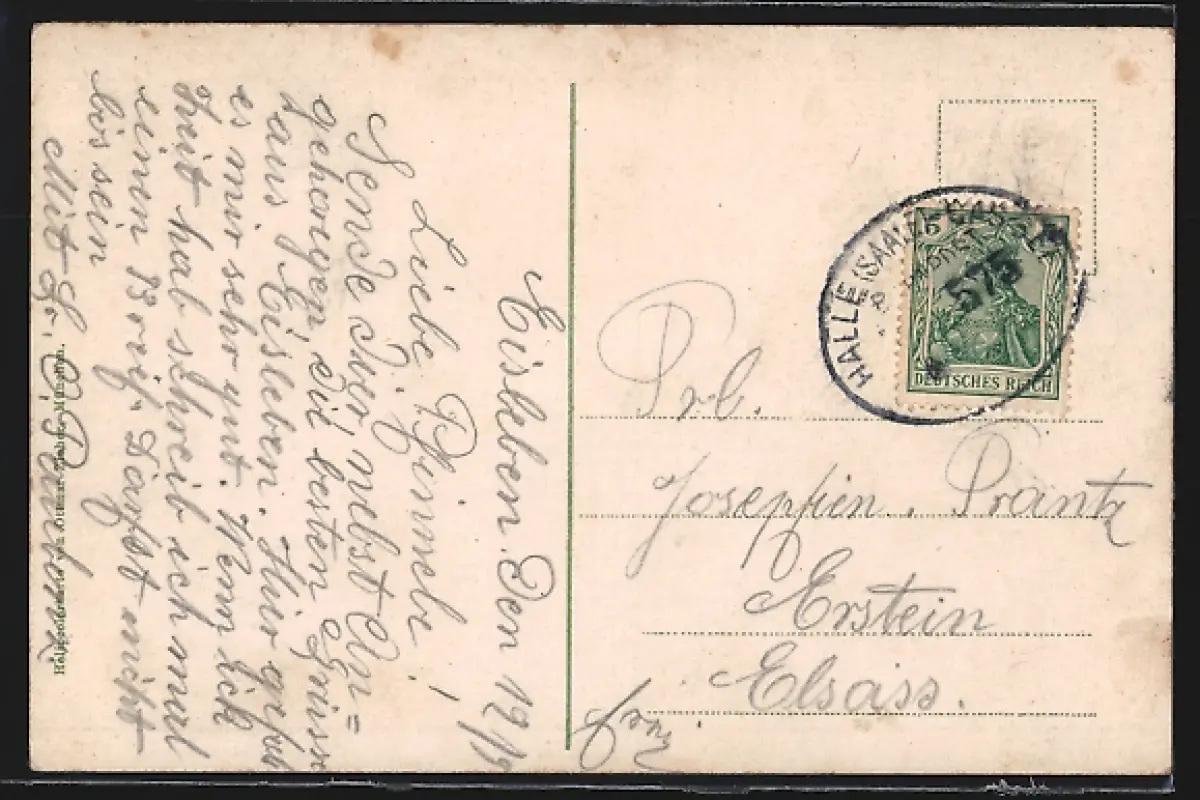 Eisleben. Den 12/9
Liebe Phinnele!
Sende Dier, nebst An=
gehörigen, die besten Grüsse
aus Eisleben. Hier gefält
es mir sehr gut. Wenn ich
Zeit hab schreib ich mal
einen Brief. Darfst nicht
bös sein
Mit Gr.
HALLE (SAALE)
575
DEUTSCHES REICH
Frl.
Josephien. Prantz
Erstein
Elsass.